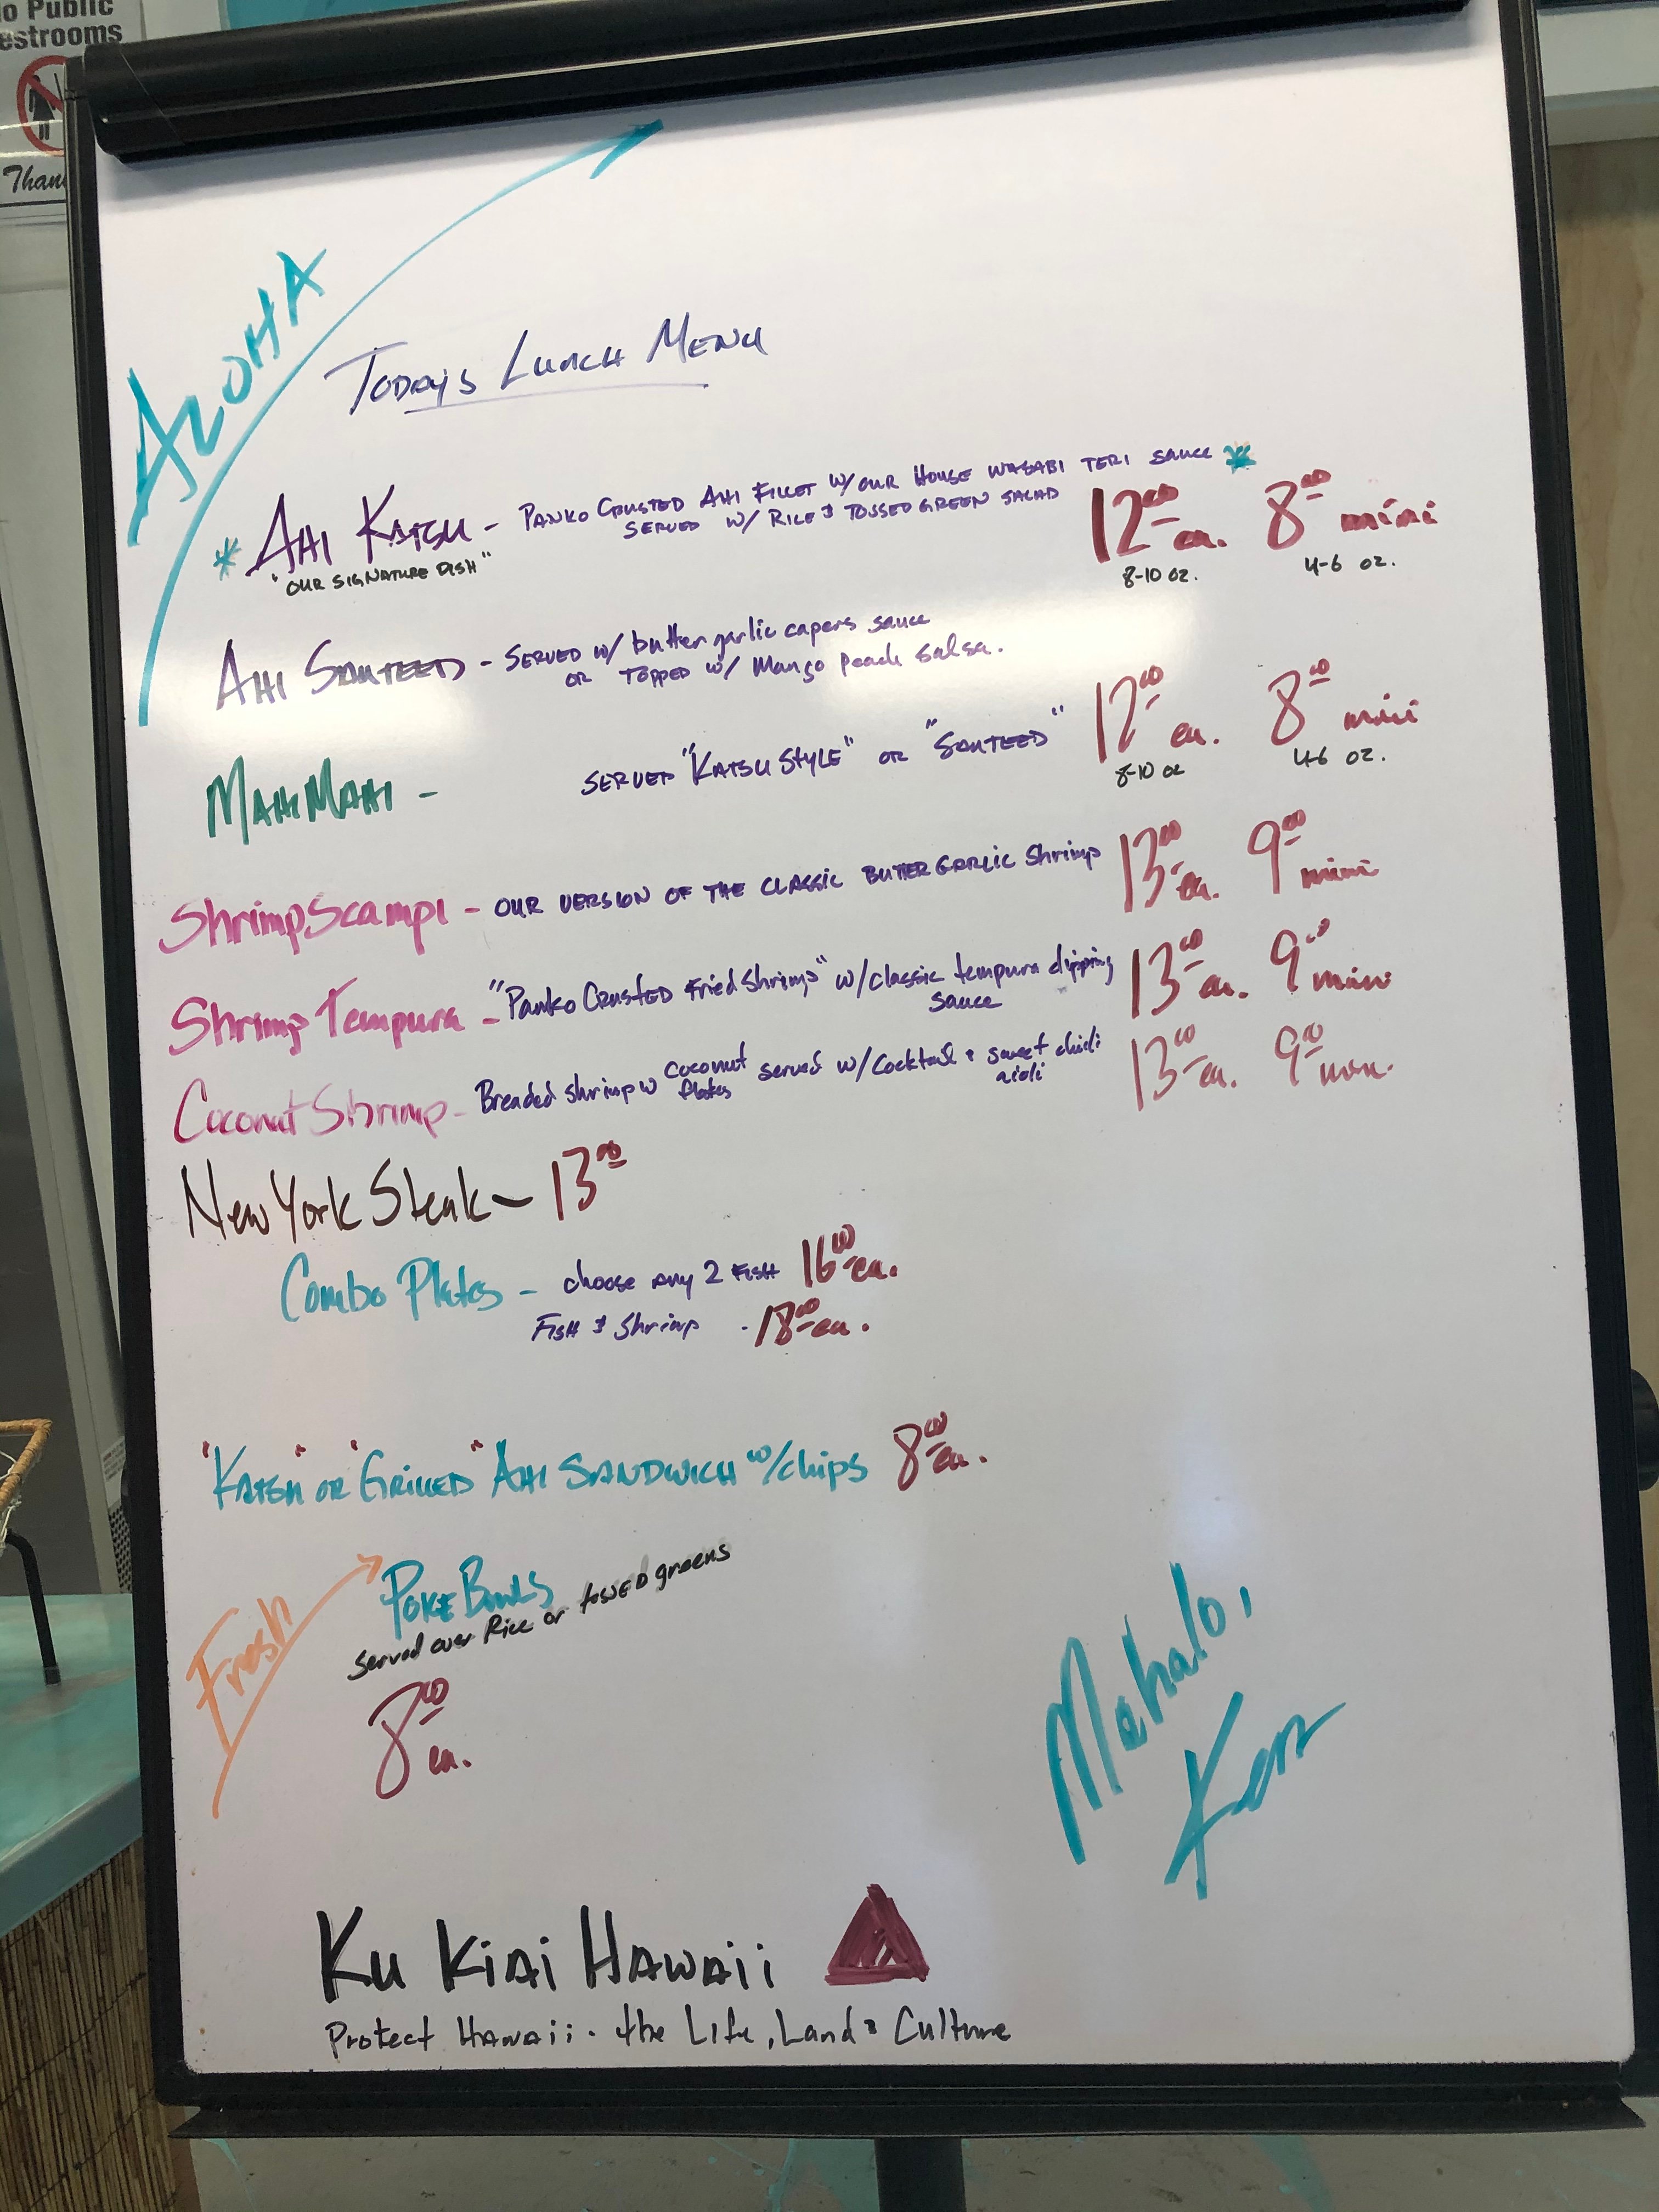 o Public
estrooms
Than
ALOHA
TODAY'S LUNCH MENU
* AHI KATSU - PANKO CRUSTED AHI FILLET W/ OUR HOUSE WASABI TERI SAUCE *
SERVED W/ RICE & TOSSED GREEN SALAD
"OUR SIGNATURE DISH"
12.00 ea. 8.00 mini
8-10 oz. 4-6 oz.
AHI SAUTEED - SERVED W/ butter garlic capers sauce
OR TOPPED W/ Mango peach salsa.
MAHI MAHI - SERVED "KATSU STYLE" OR "SAUTEED" 12.00 ea. 8.00 mini
8-10 oz 4-6 oz.
Shrimp Scampi - OUR VERSION OF THE CLASSIC BUTTER GARLIC Shrimp 13.00 ea. 9.00 mini
Shrimp Tempura - "Panko CRUSTED Fried Shrimp" w/classic tempura dipping sauce 13.00 ea. 9.00 mini
Coconut Shrimp - Breaded shrimp w coconut flakes served w/ Cocktail & sweet chili aioli 13.00 ea. 9.00 mini
New York Steak - 13.00
Combo Plates - choose any 2 FISH 16.00 ea.
FISH & Shrimp - 18.00 ea.
"KATSU" OR "GRILLED" AHI SANDWICH w/chips 8.00 ea.
Fresh
POKE BOWLS
Served over Rice or tossed greens
8.00 ea.
Mahalo,
Ken
KU KIAI HAWAII
Protect HAWAII. the Life, Land & Culture